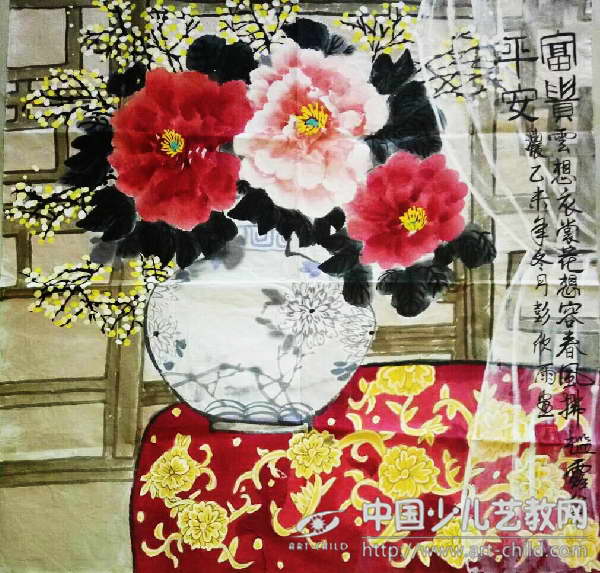 富貴雲想衣裳花想容春風拂檻露
平安濃乙未年冬月彭欣雨畫
中国少儿艺教网
ART-CHILD
http://www.art-child.com